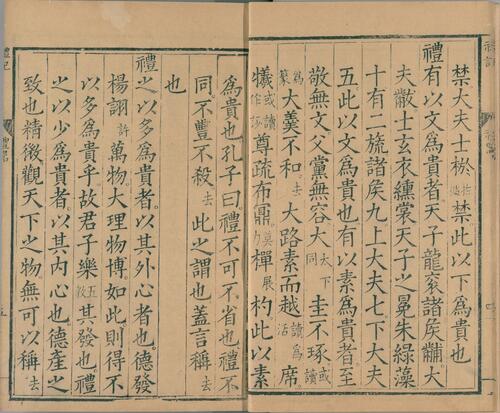 禁大夫士棜禁此以下為貴也
禮有以文為貴者天子龍衮諸矦黼大
夫黻士玄衣纁裳天子之冕朱綠藻
十有二旒諸矦九上大夫七下大夫
五此以文為貴也有以素為貴者至
敬無文父黨無容大圭不琢
大羹不和去大路素而越席
犧尊疏布鼏樿杓此以素
為貴也孔子曰禮不可不省也禮不
同不豐不殺去此之謂也盖言稱去
也
禮之以多為貴者以其外心者也德發
楊詡許萬物大理物博如此則得不
以多為貴乎故君子樂其發也禮
之以少為貴者以其內心也德產之
致也精微觀天下之物無可以稱去
禮記
禮器